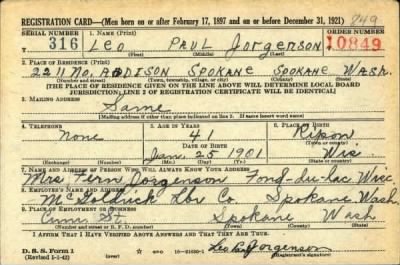 REGISTRATION CARD—(Men born on or after February 17, 1897 and on or before December 31, 1921) 849
SERIAL NUMBER 1. NAME (Print) ORDER NUMBER
316 Leo PAUL Jorgenson 10849
(First) (Middle) (Last)
2. PLACE OF RESIDENCE (Print)
2211 No. ADDISON SPOKANE SPOKANE WASH.
(Number and street) (Town, township, village, or city) (County) (State)
[THE PLACE OF RESIDENCE GIVEN ON THE LINE ABOVE WILL DETERMINE LOCAL BOARD
JURISDICTION; LINE 2 OF REGISTRATION CERTIFICATE WILL BE IDENTICAL]
3. MAILING ADDRESS
Same
[Mailing address if other than place indicated on line 2. If same insert word same]
4. TELEPHONE 5. AGE IN YEARS 6. PLACE OF BIRTH
none 41 Ripon
DATE OF BIRTH (Town or county)
Jan. 25 1901 Wis
(Exchange) (Number) (Mo.) (Day) (Yr.) (State or country)
7. NAME AND ADDRESS OF PERSON WHO WILL ALWAYS KNOW YOUR ADDRESS
Mrs Fern Jorgenson Fond-du-lac Wisc
8. EMPLOYER'S NAME AND ADDRESS
McGoldrick Lbr Co. Spokane Wash.
9. PLACE OF EMPLOYMENT OR BUSINESS
St. Spokane Wash
(Number and street or R. F. D. number) (Town) (County) (State)
I AFFIRM THAT I HAVE VERIFIED ABOVE ANSWERS AND THAT THEY ARE TRUE.
D. S. S. Form 1
(Revised 1-1-42) (over) 16—21630-1 Leo P. Jorgenson
(Registrant's signature)